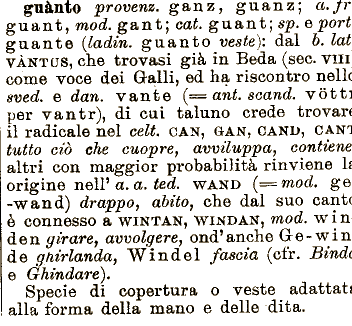 guànto provenz. ganz, guanz; a. fr
guant, mod. gant; cat. guant; sp. e port
guante (ladin. guanto veste): dal b. lat
VÀNTUS, che trovasi già in Beda (sec. VIII
come voce dei Galli, ed ha riscontro nello
sved. e dan. vante (= ant. scand. vötti
per vantr), di cui taluno crede trovare
il radicale nel celt. CAN, GAN, CAND, CANT
tutto ciò che cuopre, avviluppa, contiene
altri con maggior probabilità rinviene la
origine nell' a. a. ted. WAND (= mod. ge
-wand) drappo, abito, che dal suo canto
è connesso a WINTAN, WINDAN, mod. win
den girare, avvolgere, ond'anche Ge-win
de ghirlanda, Windel fascia (cfr. Binda
e Ghindare).
Specie di copertura o veste adattata
alla forma della mano e delle dita.